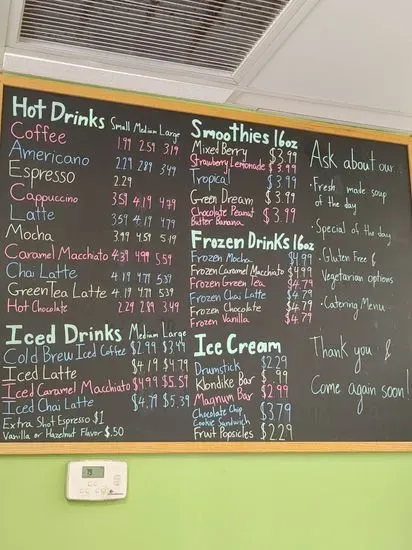 Hot Drinks Small Medium Large
Coffee 1.99 2.59 3.19
Americano 2.29 2.89 3.49
Espresso 2.29
Cappuccino 3.59 4.19 4.79
Latte 3.59 4.19 4.79
Mocha 3.99 4.59 5.19
Caramel Macchiato 4.39 4.99 5.59
Chai Latte 4.19 4.79 5.39
Green Tea Latte 4.19 4.79 5.39
Hot Chocolate 2.29 2.89 3.49
Iced Drinks Medium Large
Cold Brew Iced Coffee $2.99 $3.49
Iced Latte $4.19 $4.79
Iced Caramel Macchiato $4.99 $5.59
Iced Chai Latte $4.79 $5.39
Extra Shot Espresso $1
Vanilla or Hazelnut Flavor $.50
Smoothies 16oz
Mixed Berry $3.99
Strawberry Lemonade $3.99
Tropical $3.99
Green Dream $3.99
Chocolate Peanut
Butter Banana $3.99
Frozen Drinks 16oz
Frozen Mocha $4.99
Frozen Caramel Macchiato $4.99
Frozen Green Tea $4.79
Frozen Chai Latte $4.79
Frozen Chocolate $4.79
Frozen Vanilla $4.79
Ice Cream
Drumstick $2.29
Klondike Bar $.99
Magnum Bar $2.99
Chocolate Chip
Cookie Sandwich $3.79
Fruit Popsicles $2.29
Ask about our
· Fresh made soup
of the day
· Special of the day
· Gluten Free &
Vegetarian options
· Catering Menu
Thank you &
Come again soon!